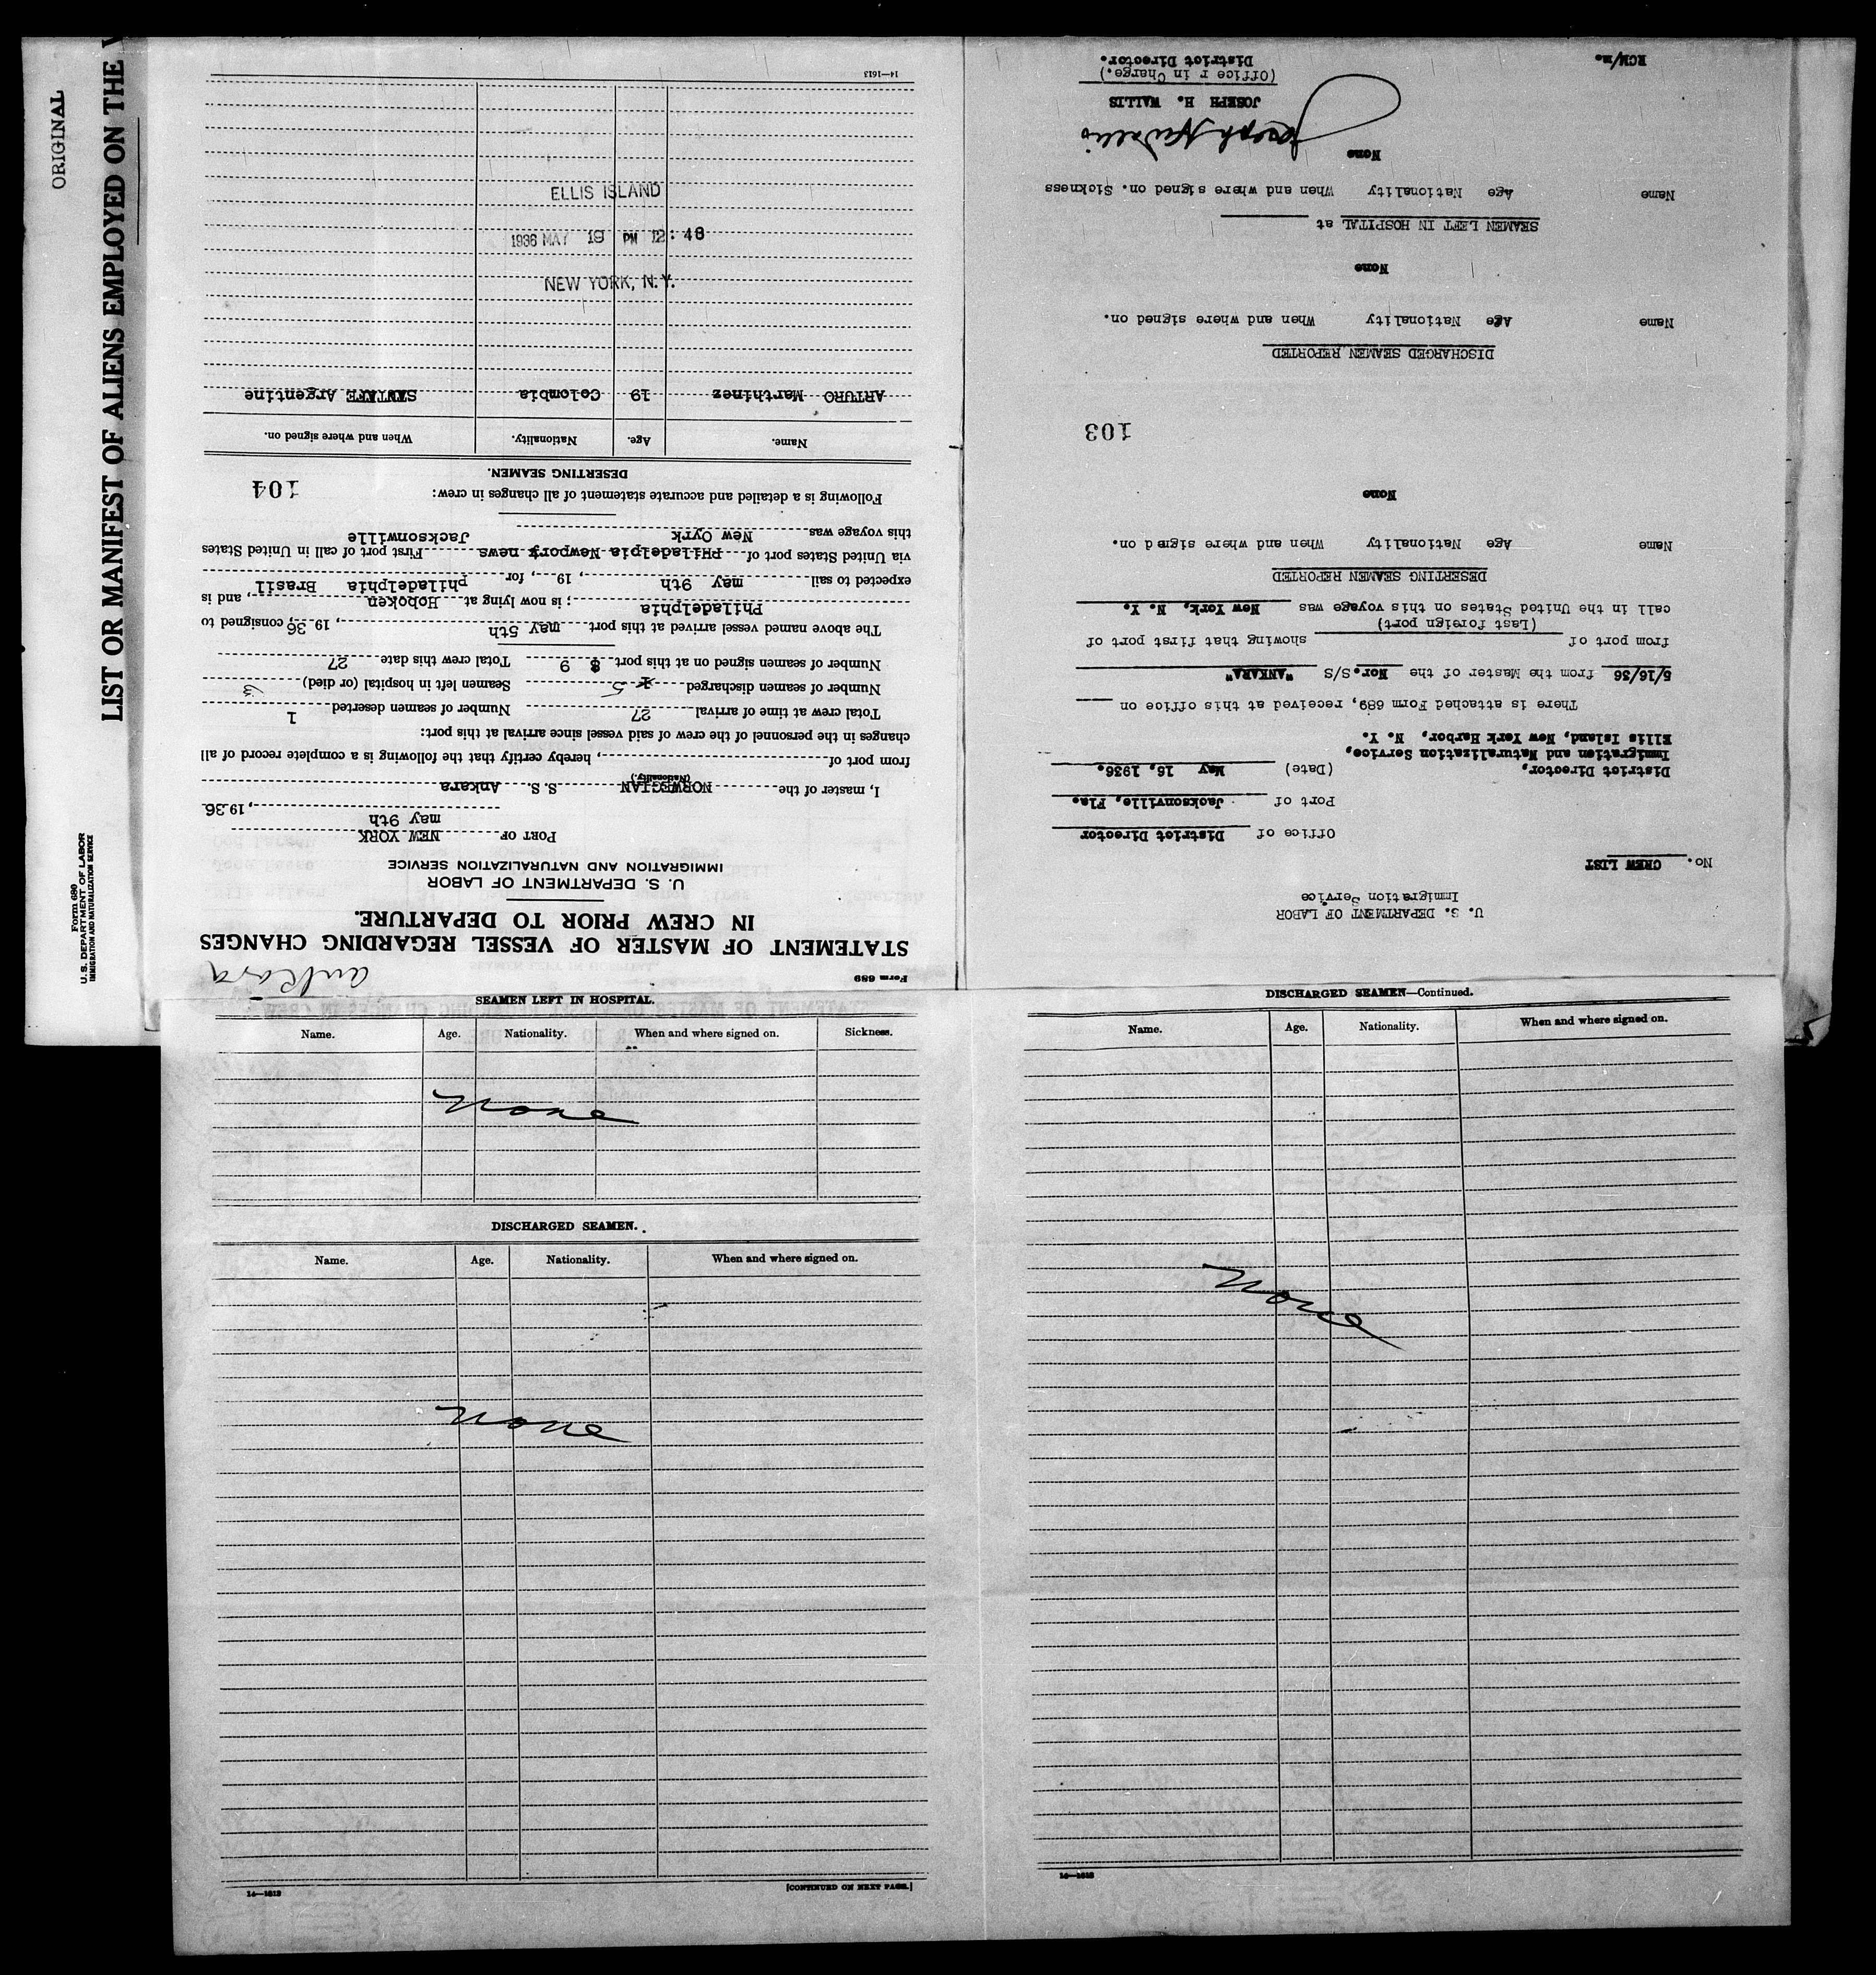 ORIGINAL
LIST OR MANIFEST OF ALIENS EMPLOYED ON THE
Form 680
U.S. DEPARTMENT OF LABOR
IMMIGRATION AND NATURALIZATION SERVICE
Form 689
Ankara
STATEMENT OF MASTER OF VESSEL REGARDING CHANGES
IN CREW PRIOR TO DEPARTURE.
U. S. DEPARTMENT OF LABOR
IMMIGRATION AND NATURALIZATION SERVICE
PORT OF NEW YORK
may 9th, 1936
I, master of the NORWEGIAN S. S. Ankara
(Nationality.)
from port of , hereby certify that the following is a complete record of all
changes in the personnel of the crew of said vessel since arrival at this port:
Total crew at time of arrival 27 Number of seamen deserted 1
Number of seamen discharged 5 Seamen left in hospital (or died)
Number of seamen signed on at this port 9 Total crew this date 27
The above named vessel arrived at this port may 5th, 1936, consigned to
Philadelphia ; is now lying at Hoboken, and is
expected to sail may 9th, 19 , for philadelphia Brasil
via United States port of PHiladelpia Newport news First port of call in United States
this voyage was New Oyrk Jacksonwille
Following is a detailed and accurate statement of all changes in crew:
104
DESERTING SEAMEN.
Name. Age. Nationality. When and where signed on.
ARTURO Marthinez 19 Colombia SANTAFE Argentine
NEW YORK, N.Y.
1936 MAY 19 PM 12:46
ELLIS ISLAND
14—1613
U. S. DEPARTMENT OF LABOR
Immigration Service
No. CREW LIST
Office of District Director
Port of Jacksonville, Fla.
(Date) May 16, 1936.
District Director,
Immigration and Naturalization Service,
Ellis Island, New York Harbor, N. Y.
There is attached Form 689, received at this office on
5/16/36 from the Master of the Nor. S/S "ANKARA"
from port of showing that first port of
(Last foreign port)
call in the United States on this voyage was New York, N. Y.
DESERTING SEAMEN REPORTED
Name Age Nationality When and where signed on.
None
103
DISCHARGED SEAMEN REPORTED
Name Age Nationality When and where signed on.
None
SEAMEN LEFT IN HOSPITAL at
Name Age Nationality When and where signed on. Sickness
None
Joseph H Wallis
JOSEPH H. WALLIS
(Office r in Charge.)
District Director.
RCM/m.
SEAMEN LEFT IN HOSPITAL.
Name. Age. Nationality. When and where signed on. Sickness.
None
DISCHARGED SEAMEN.
Name. Age. Nationality. When and where signed on.
None
14—1613
[CONTINUED ON NEXT PAGE.]
DISCHARGED SEAMEN—Continued.
Name. Age. Nationality. When and where signed on.
None
14—1613